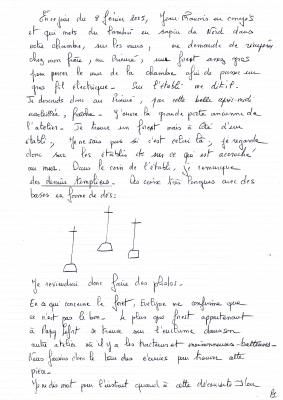 En ce jour du 8 février 2005, Jean-Francois en congés
et qui mets du lambri en sapin du Nord dans
notre chambre, sur les murs, me demande de récupérer
chez mon frère, au Prieuré, une forest assez gros
pour percer le mur de la chambre afin de passer un
gros fil électrique. Sur l'établi me dit-il.
Je descends donc au Prieuré, par cette belle après-midi
ensoleillée, fraîche. J'ouvre la grande porte ancienne de
l'atelier. Je trouve un forest mais à côté d'un
établi, je ne sais pas si c'est celui là, je regarde
donc sur les établis et sur ce qui est accroché
au mur. Dans le coin de l'établi, je remarque
des templiers. Des croix très longues avec des
bases en forme de dés:
Je reviendrai donc faire des photos.
En ce qui concerne le foret, Evelyne me confirme que
ce n'est pas le bon. Le plus gros forest appartenant
à Papy se trouve sur l'enclume dans son
autre atelier où il y a les tracteurs et moissonneuses-batteuses.
Nous faisons donc le tour des écuries pour trouver cette
pièce.
Je ne dis mot pour l'instant quand à cette découverte.